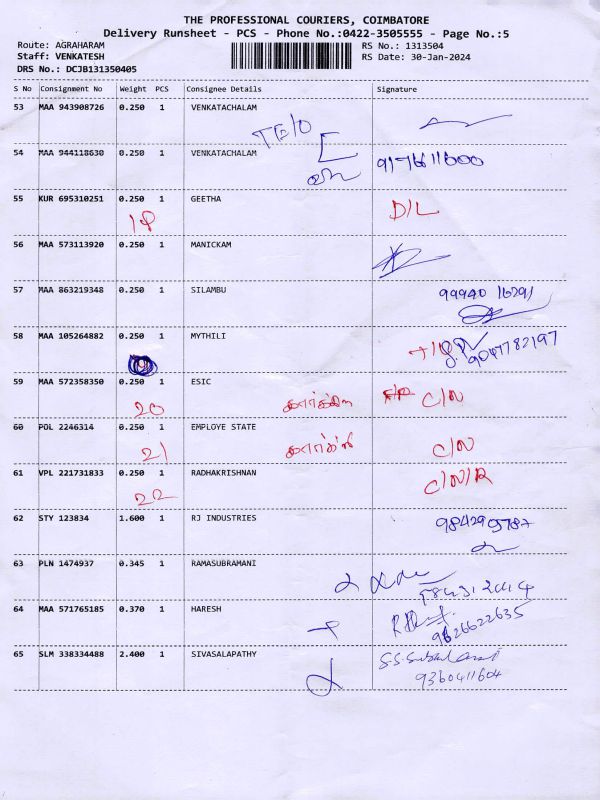 THE PROFESSIONAL COURIERS, COIMBATORE
Delivery Runsheet - PCS - Phone No.:0422-3505555 - Page No.:5
Route: AGRAHARAM RS No.: 1313504
Staff: VENKATESH RS Date: 30-Jan-2024
DRS No.: DCJB131350405
S No Consignment No Weight PCS Consignee Details Signature
53 MAA 943908726 0.250 1 VENKATACHALAM
54 MAA 944118630 0.250 1 VENKATACHALAM 9176611600
55 KUR 695310251 0.250 1 GEETHA D/L
19
56 MAA 573113920 0.250 1 MANICKAM
57 MAA 863219348 0.250 1 SILAMBU 99940 16291
58 MAA 105264882 0.250 1 MYTHILI
9047782197
59 MAA 572358350 0.250 1 ESIC C/N
20
60 POL 2246314 0.250 1 EMPLOYE STATE C/N
21
61 VPL 221731833 0.250 1 RADHAKRISHNAN C/N/R
22
62 STY 123834 1.600 1 RJ INDUSTRIES
63 PLN 1474937 0.345 1 RAMASUBRAMANI
64 MAA 571765185 0.370 1 HARESH
9626622635
65 SLM 338334488 2.400 1 SIVASALAPATHY
9360411604